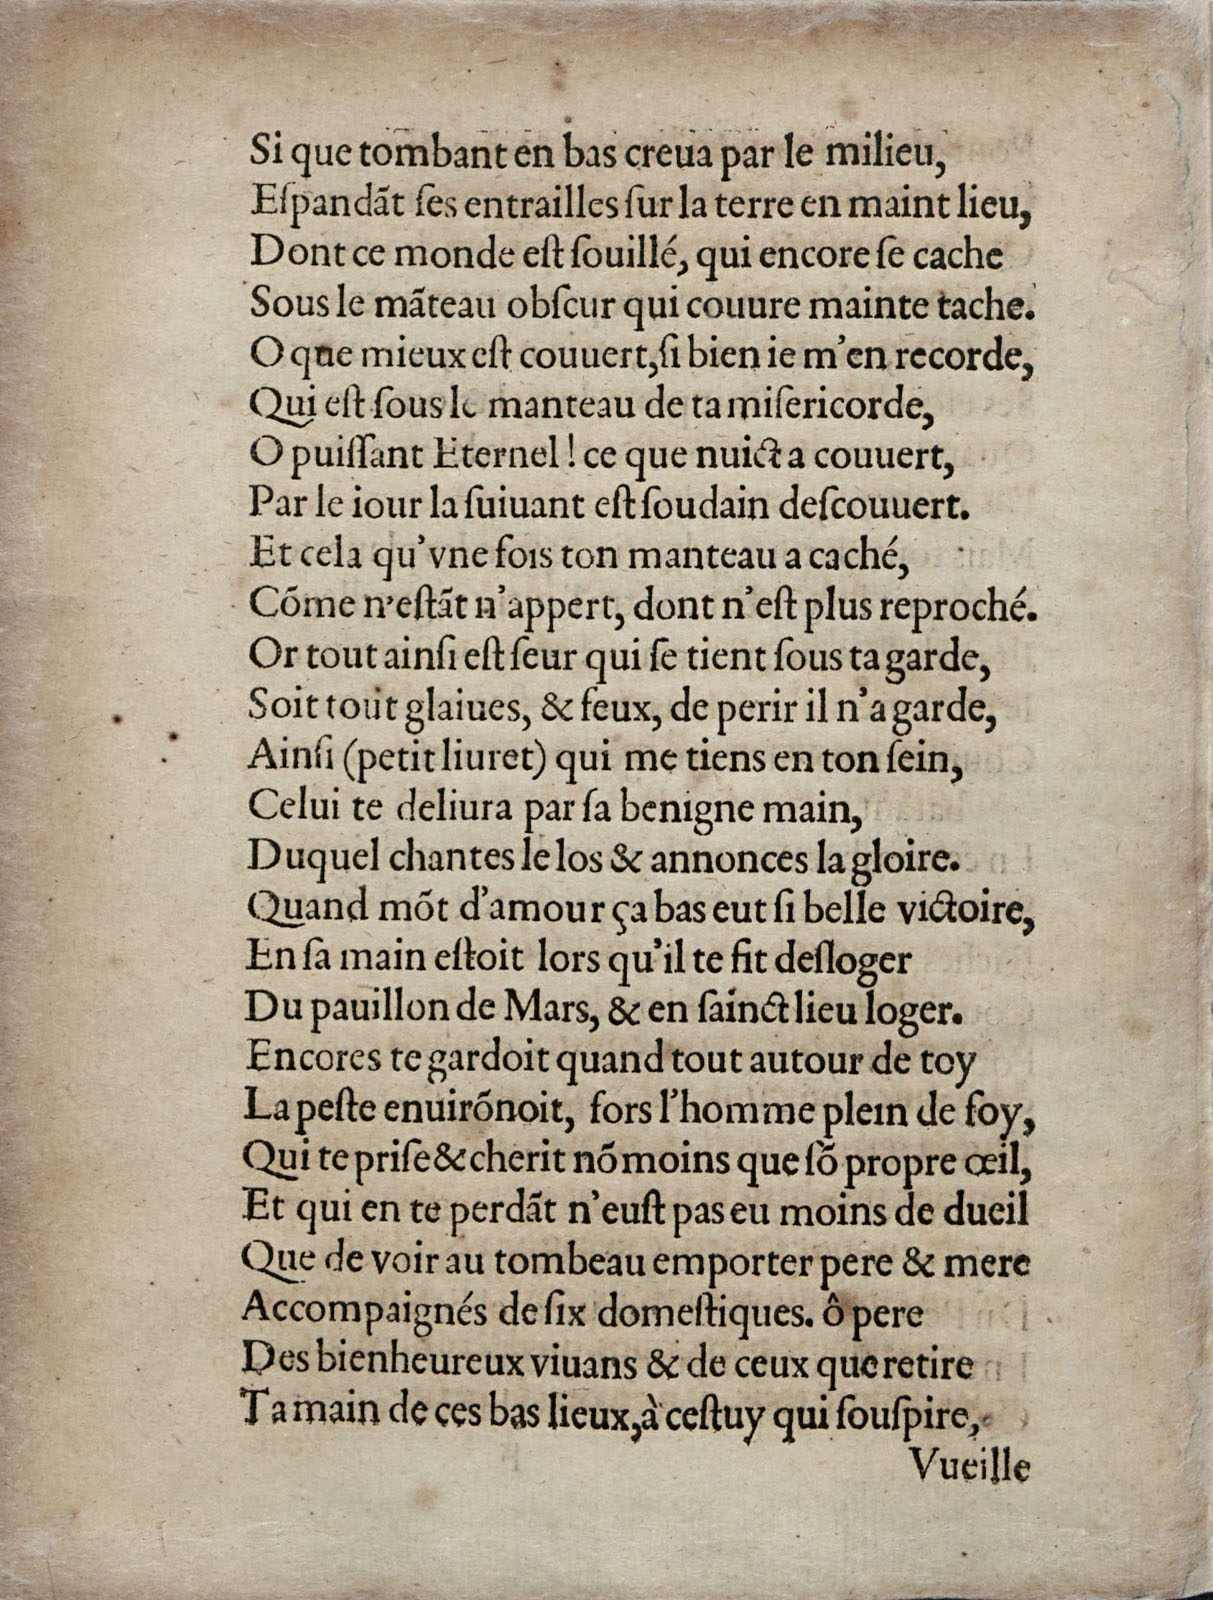 Si que tombant en bas creua par le milieu,
Eſpandãt ſes entrailles ſur la terre en maint lieu,
Dont ce monde eſt ſouillé, qui encore ſe cache
Sous le mãteau obſcur qui couure mainte tache.
O que mieux eſt couuert, ſi bien ie m'en recorde,
Qui eſt ſous le manteau de ta miſericorde,
O puiſſant Eternel ! ce que nuict a couuert,
Par le iour la ſuiuant eſt ſoudain deſcouuert.
Et cela qu'vne fois ton manteau a caché,
Cõme n'eſtãt n'appert, dont n'eſt plus reproché.
Or tout ainſi eſt ſeur qui ſe tient ſous ta garde,
Soit tout glaiues, & feux, de perir il n'a garde,
Ainſi (petit liuret) qui me tiens en ton ſein,
Celui te deliura par ſa benigne main,
Duquel chantes le los & annonces la gloire.
Quand mõt d'amour ça bas eut ſi belle victoire,
En ſa main eſtoit lors qu'il te fit deſloger
Du pauillon de Mars, & en ſainct lieu loger.
Encores te gardoit quand tout autour de toy
La peſte enuirõnoit, fors l'homme plein de foy,
Qui te priſe & cherit nõ moins que ſõ propre œil,
Et qui en te perdãt n'euſt pas eu moins de dueil
Que de voir au tombeau emporter pere & mere
Accompaignés de ſix domeſtiques. ô pere
Des bienheureux viuans & de ceux que retire
Ta main de ces bas lieux, à ceſtuy qui ſouſpire,
Vueille